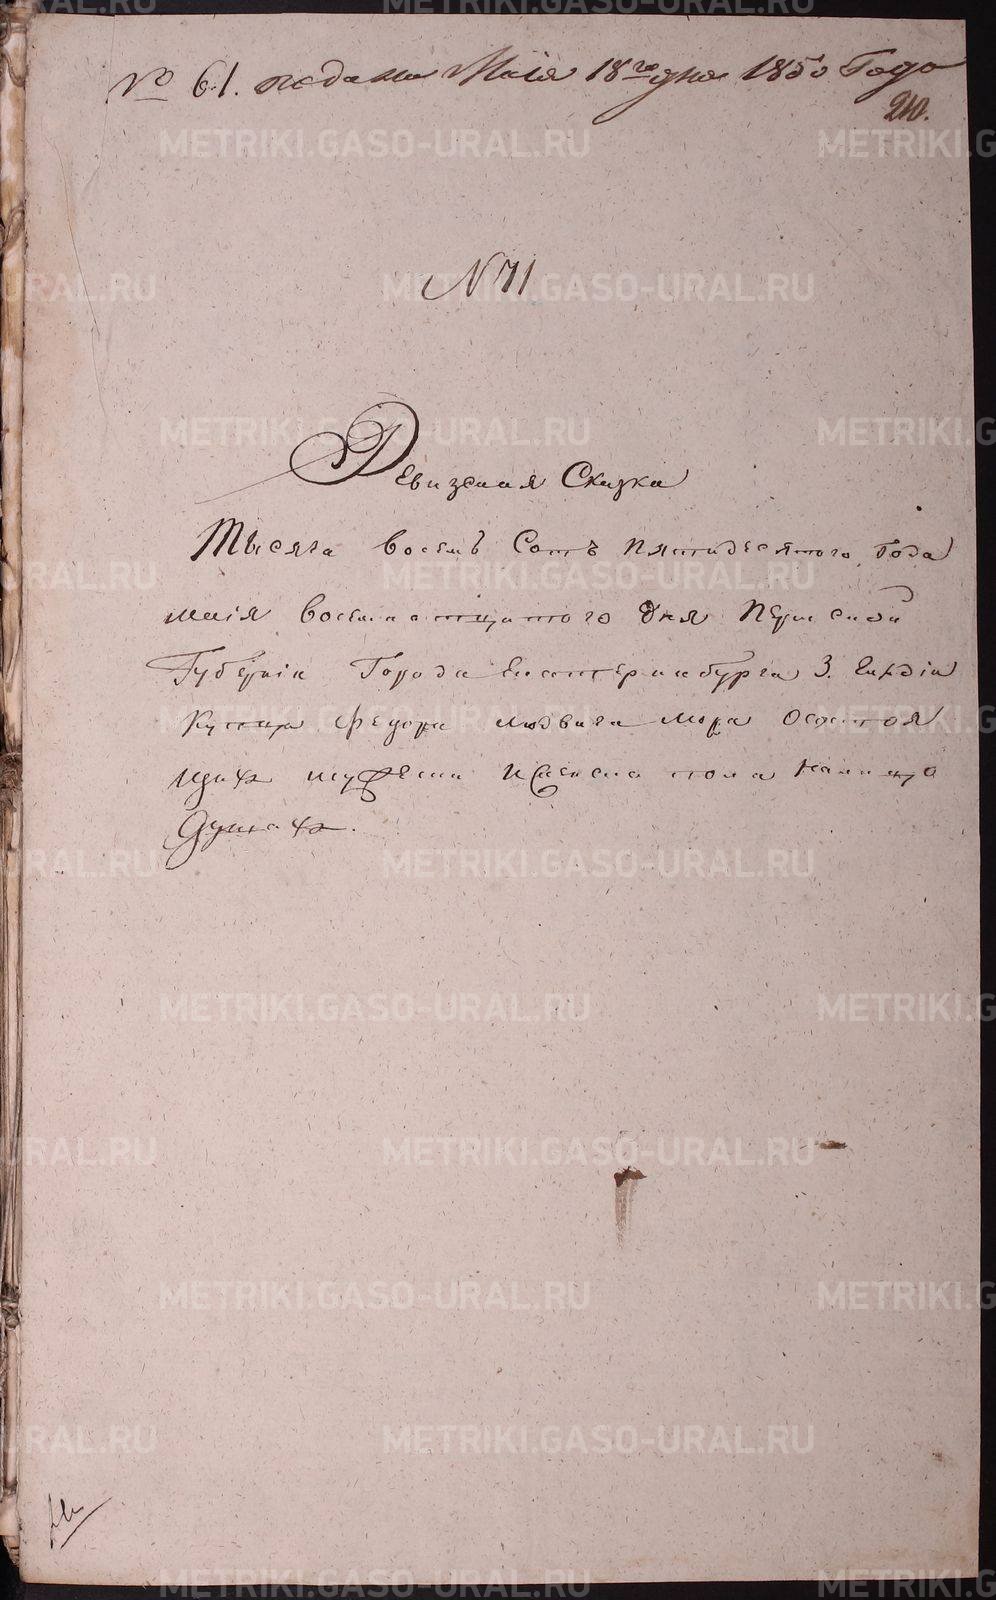 № 61. подана Маія 18го дня 1850 Года
210.
№ 71
Ревизская Сказка
Тысяча Восемь Сотъ Пятидесятого Года
маія Восемнатцатого Дня Пермской
Губерніи Города Екатеринбурга 3. Гилдіи
Купца Федора Людвига Мора Осостоя
щихъ мужеска И женска пола налицо
Душахъ.
METRIKI.GASO-URAL.RU